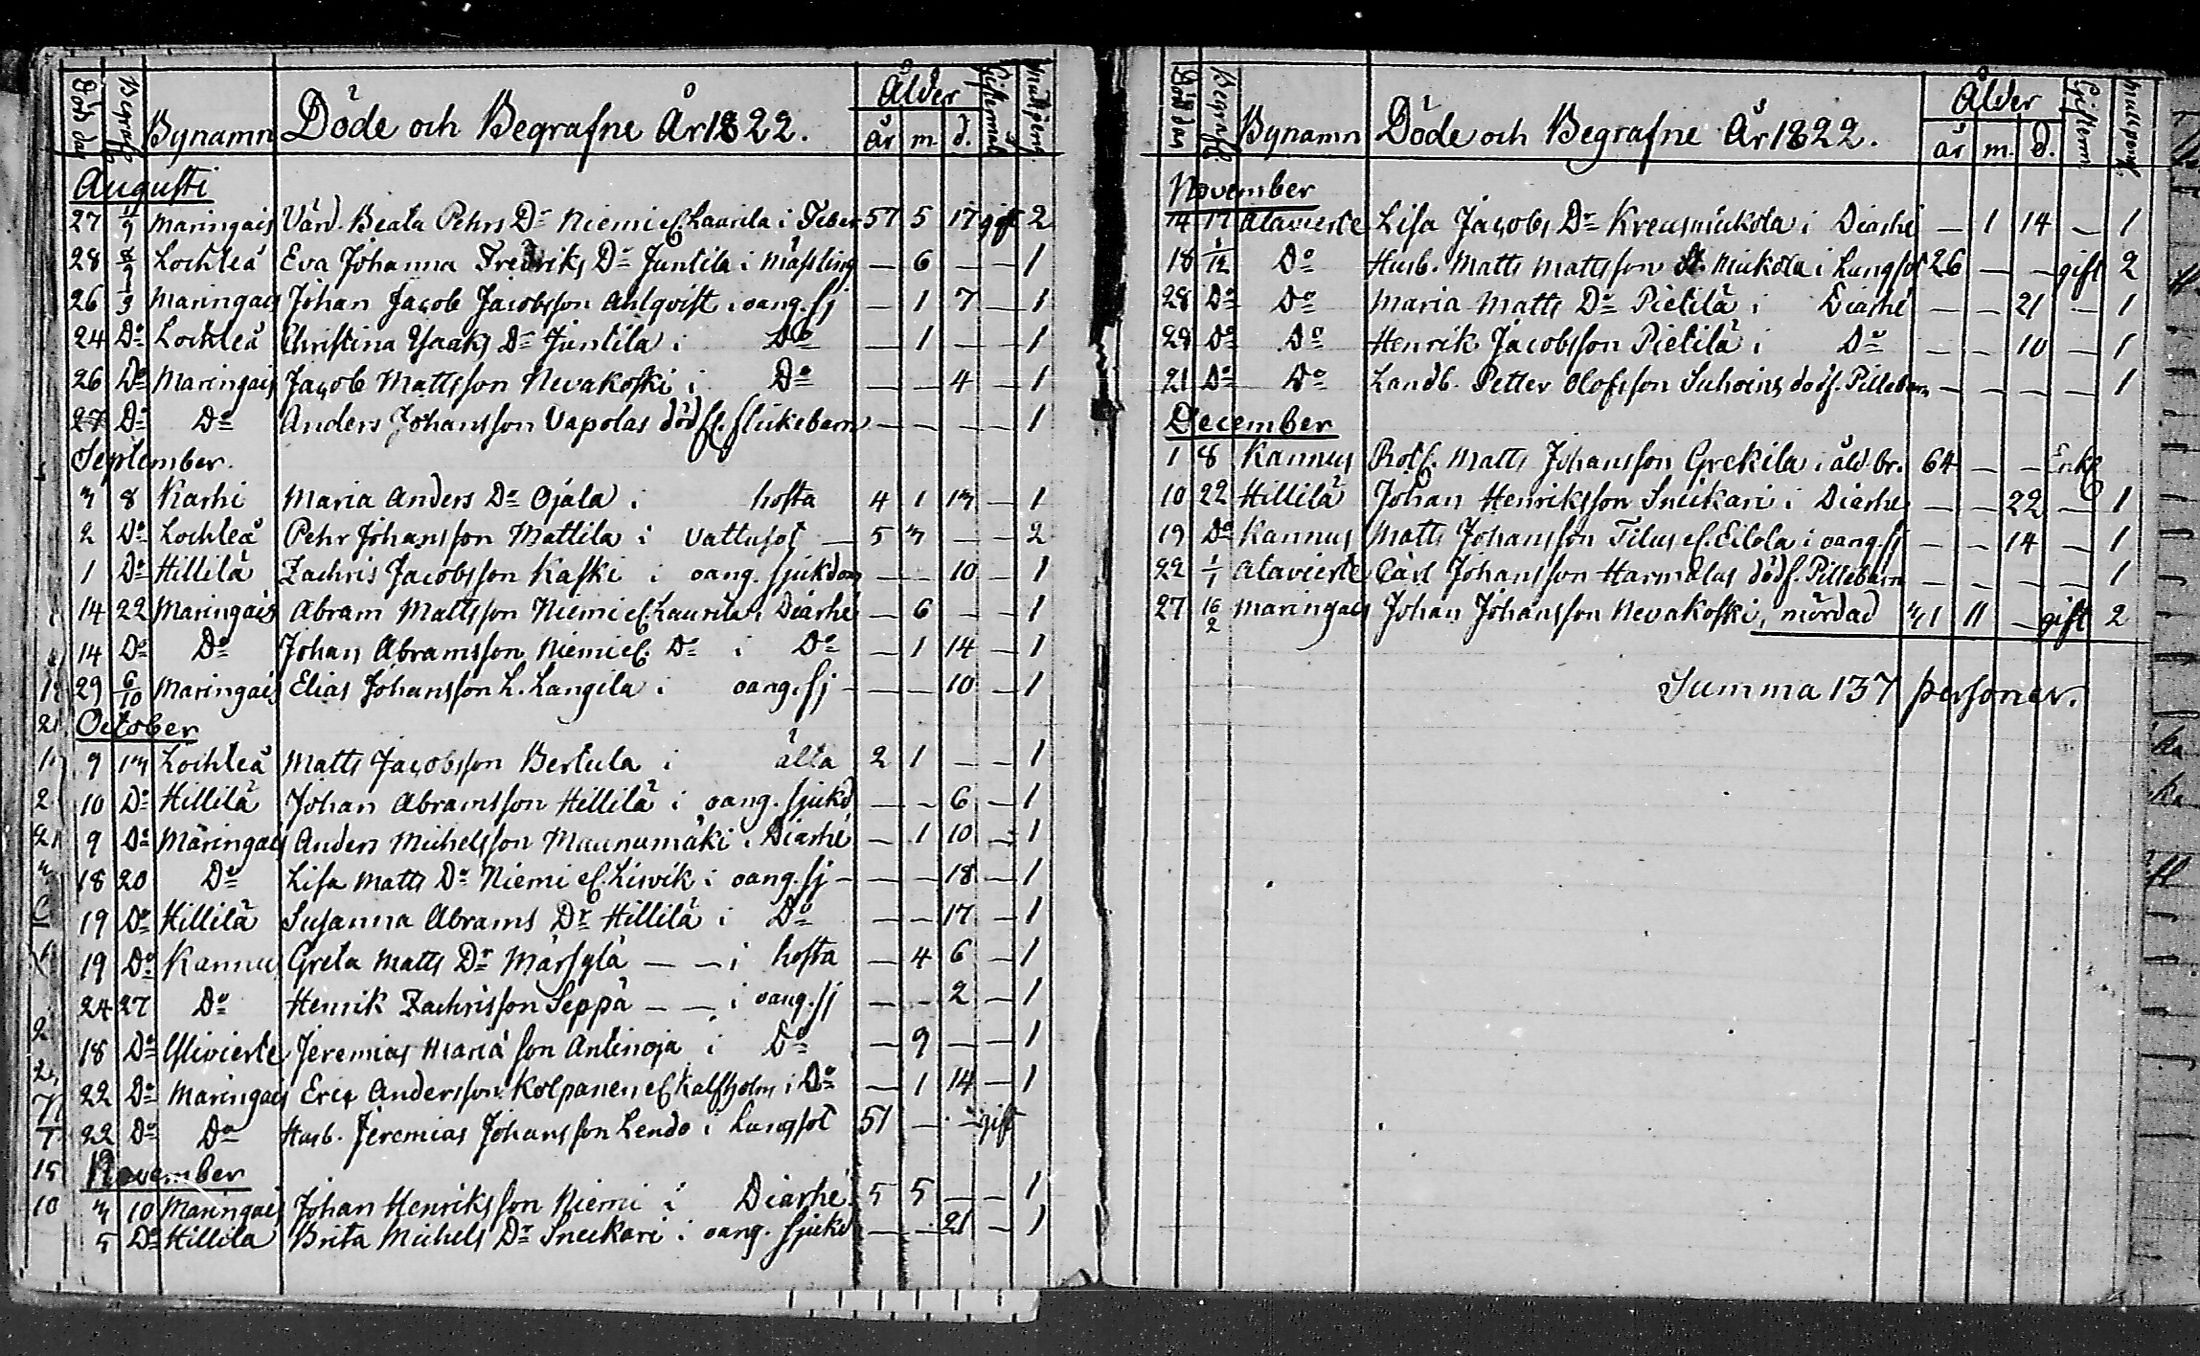 Död dag Begrafd Bynamn Döde och Begrafne År 1822. Ålder år m. d. Giftermål
Augusti
27 11/9 Maringais Värd. Beata Pehrs Dr Niemi el. Laurila i Feber 57 5 17 gift 2
28 8/9 Lochteå Eva Johanna Fredriks Dr Juntila i Mässling — 6 — — 1
26 1/9 Maringais Johan Jacob Jacobsson Ahlqvist i oang. sj — 1 7 — 1
24 Do Lochteå Christina Isaaks Dr Juntila i Do — 1 — — 1
26 Do Maringais Jacob Mattsson Nevakoski i Do — — 4 — 1
27 Do Do Anders Johansson Vapolas dödf. flickebarn — — — — 1
September.
3 8 Karhi Maria Anders Dr Ojala i hosta 4 1 13 — 1
2 Do Lochteå Pehr Johansson Mattila i Vattusot — 5 3 — — 2
1 Do Hillilä Zachris Jacobsson Kaski i oang. sjukdom — — 10 — 1
14 22 Maringais Abram Mattsson Niemi el. Laurila i Diarhé — 6 — — 1
14 Do Do Johan Abramsson Niemi el. Do i Do — 1 14 — 1
29 6/10 Maringais Elias Johansson L. Langila i oang. sj — — — 10 — 1
October
9 13 Lochteå Matts Jacobsson Bertula i älta 2 1 — — 1
10 Do Hillilä Johan Abramsson Hillilä i oang. sjukd — — 6 — 1
9 Do Maringais Anders Michelsson Maunumäki i Diarhé — 1 10 — 1
18 20 Do Lisa Matts Dr Niemi el. Liswik i oang. sj — — — 18 — 1
19 Do Hillilä Susanna Abrams Dr Hillilä i Do — — 17 — 1
19 Do Kannus Greta Matts Dr Märsylä — — i hosta — 4 6 — 1
24 27 Do Henrik Zachrisson Seppä — — i oang. sj — — 2 — 1
18 Do Ylivierte Jeremias Maria son Antinoja i Do — 9 — — 1
22 Do Maringais Eric Andersson Kolpanen el. Kalfholm i Do — 1 14 — 1
22 Do Do Husb. Jeremias Johansson Lendo i Lungsot 51 — — gift
November
3 10 Maringais Johan Henriksson Niemi i Diarhé 5 5 — — 1
5 Do Hillilä Brita Michels Dr Sneckari i oang. sjukd — — 21 — 1
Död dag Begrafd Bynamn Döde och Begrafne År 1822. Ålder år m. d. Gifterm.
November
14 17 Alavierte Lisa Jacobs Dr Kreusmuckola i Diarhé — 1 14 — 1
18 1/12 Do Husb. Matts Mattsson Muckola i Lungsot 26 — — gift 2
28 Do Do Maria Matts Dr Pietilä i Diarhé — — 21 — 1
29 Do Do Henrik Jacobsson Pietilä i Do — — 10 — 1
21 Do Do Landb. Petter Olofsson Suhoins dödf. Pillebarn — — — — 1
December
1 8 Kannus Rotf. Matts Johansson Grekila i åld. br. 64 — — Enkl
10 22 Hillilä Johan Henriksson Sneckari i Diarhe — — 22 — 1
19 Do Kannus Matts Johansson Tilus el. Eilola i oang. sj — — 14 — 1
22 1/1 Alavierte Carl Johansson Harmalas dödf. Pillebarn — — — — 1
27 16/2 Maringais Johan Johansson Nevakoski, mördad 31 11 — gift 2
Summa 137 personer.